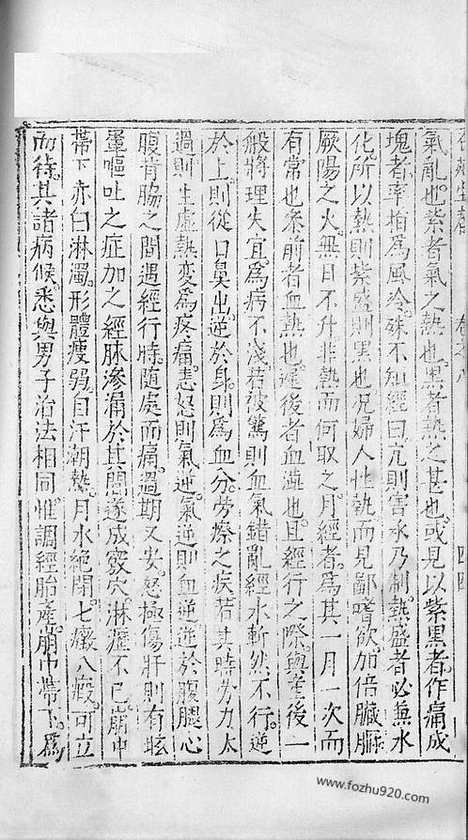 氣亂也紫者氣之熱也黑者熱之甚也或見以紫黑者作痛成
塊者率指為風冷殊不知經曰亢則害承乃制熱盛者必兼水
化所以熱則紫甚則黑也况婦人性執而見鄙嗜欲加倍臟腑
厥陽之火無日不升非熱而何取之月經者為其一月一次而
有常也來前者血熱也違後者血滯也且經行之際與產後一
般將理失宜為病不淺若被驚則血氣錯亂經水斬然不行逆
於上則從口鼻出逆於身則為血分勞瘵之疾若其時勞力太
過則生虛熱變為疼痛恚怒則氣逆氣逆則血逆逆於腹腰心
腹背脇之間遇經行時隨處而痛過期又安怒極傷肝則有眩
暈嘔吐之症加之經脉滲漏於其間遂成竅穴淋瀝不已崩中
帶下赤白淋濁形體瘦弱自汗潮熱月水絶閉七癥八瘕可立
而待其諸病候悉與男子治法相同惟調經胎產崩中帶下為
www.fozhu920.com